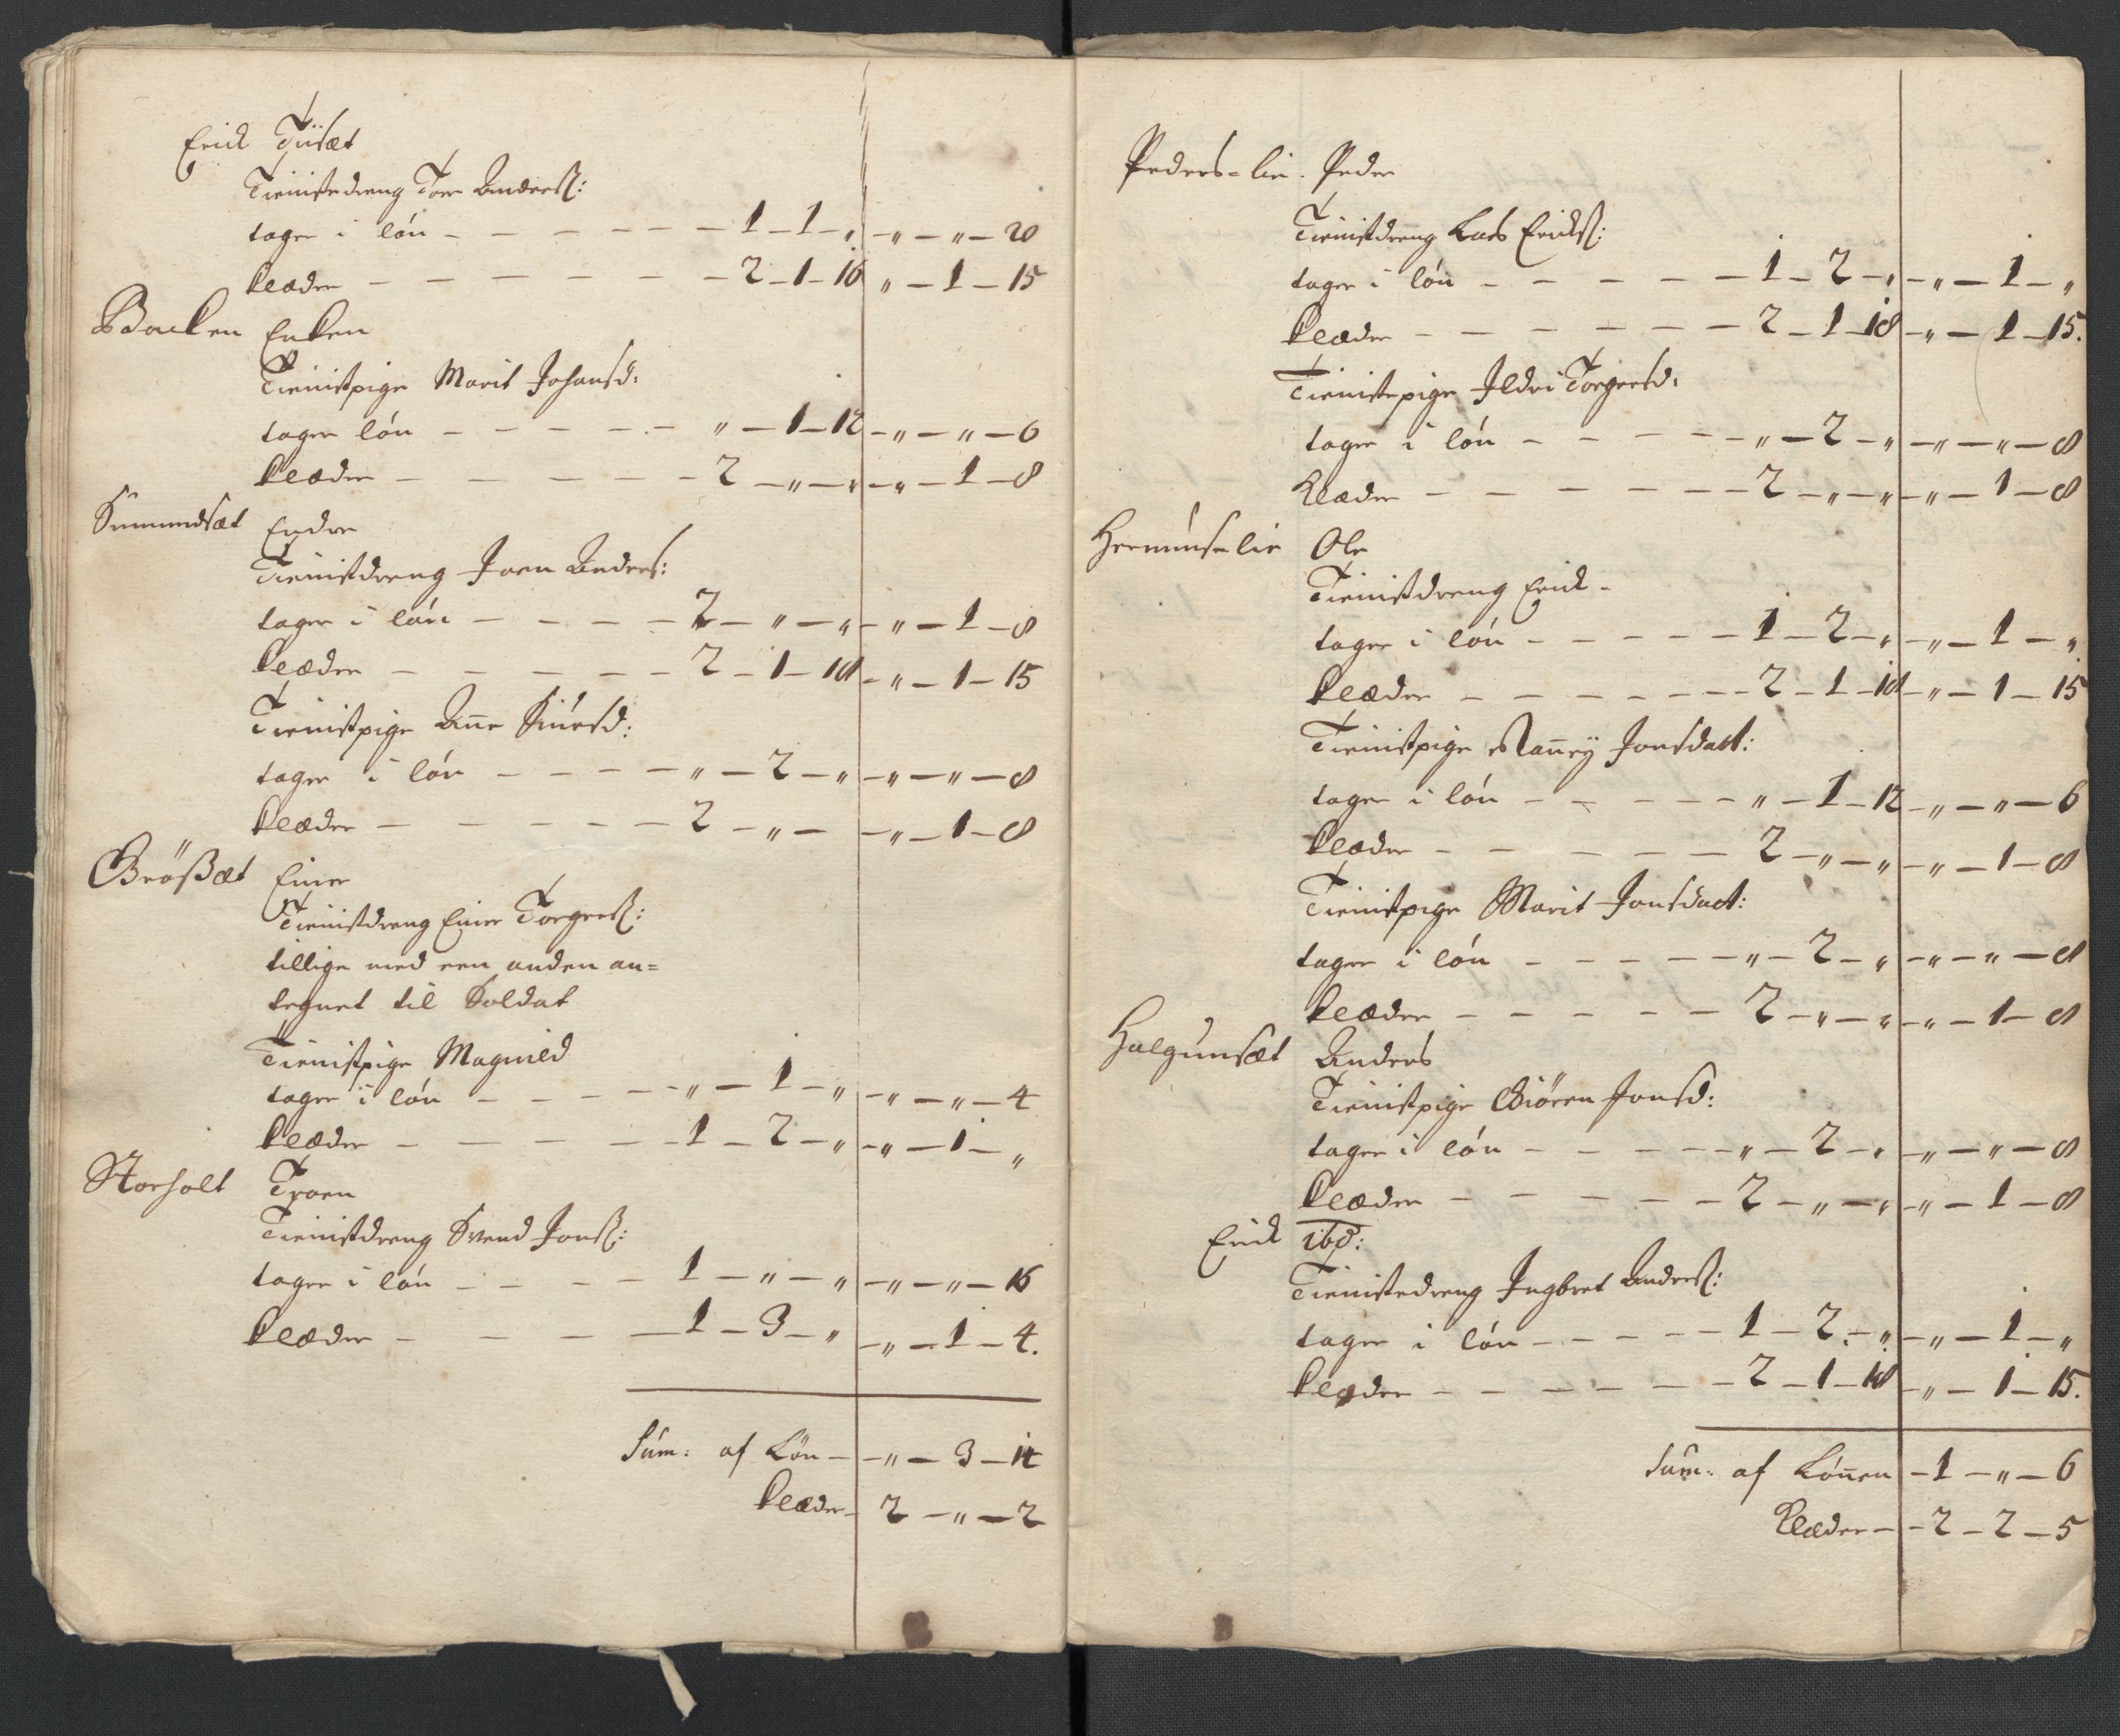 Erick Tiisæt
Tienistedreng Tore Anderß:
tager i lón – – – – – – 1 – 1 – „ – „ – „ – 20
klæder – – – – – – 2 – 1 – 16 „ – 1 – 15
Backen Enken
Tienistpige Marit Johansd:
tager lón – – – – – „ – 1 – 12 – „ – „ – 6
klæder – – – – – 2 – „ – „ – „ – 1 – 8
Simmindsæt Endre
Tienistdreng Joen Anders:
tager i lón – – – – 2 – „ – „ – „ – 1 – 8
klæder – – – – – 2 – 1 – 18 – „ – 1 – 15
Tienistpige Ane Siúrsd:
tager i lón – – – – „ – 2 – „ – „ – „ – 8
klæder – – – – – 2 – „ – – „ – 1 – 8
Brößæt Einer
Tienistdreng Einer Torgerß:
tillige med een anden an=
tegnet til Soldat
Tienistpige Magnild
tager i lón – – – – „ – 1 – „ – „ – „ – 4
klæder – – – – – 1 – 2 – „ – „ – 1 – „
Storholt Troen
Tienistdreng Svend Jonß:
tager i lón – – – – 1 – „ – „ – „ – „ – 16
klæder – – – – 1 – 3 – „ – „ – 1 – 4.
Súm: af Lön – – „ – 3 – 14
klæder – 2 – „ – 2
Peders=lie. Peder
Tienistdreng Lars Erichß:
tager i lón – – – – – 1 – 2 – „ – „ – 1 – „
klæder – – – – – – 2 – 1 – 18 – „ – 1 – 15.
Tienistepige Ildri Torgersd:
tager i lón – – – – – „ – 2 – „ – „ – „ – 8
Klæder – – – – – – 2 – „ – „ – „ – 1 – 8
Hermúns=lie Ole
Tienistdreng Erick –
tager i lón – – – – – 1 – 2 – „ – „ – 1 – „
klæder – – – – – – 2 – 1 – 18 – „ – 1 – 15
Tienistpige Raneÿ Jonsdatt:
tager i lón – – – – – „ – 1 – 12 – „ – „ – 6
klæder – – – – – – 2 – „ – „ – „ – 1 – 8
Tienistpige Marit Jonsdatt:
tager i lón – – – – – „ – 2 – „ – „ – „ – 8
klæder – – – – – 2 – „ – „ – „ – 1 – 8
Halgúnsæt Anders
Tienistpige Giören Jonsd:
tager i lón – – – – – „ – 2 – „ – „ – „ – 8
klæder – – – – – 2 – „ – „ – „ – 1 – 8
Erick ibd:
Tienistedreng Ingbret Anderß:
tager i lón – – – – – 1 – 2 – „ – „ – 1 – „
klæder – – – – – – 2 – 1 – 18 – „ – 1 – 15.
Súm: af Lónen – 1 – „ – 6
Klæder – – 2 – 2 – 5